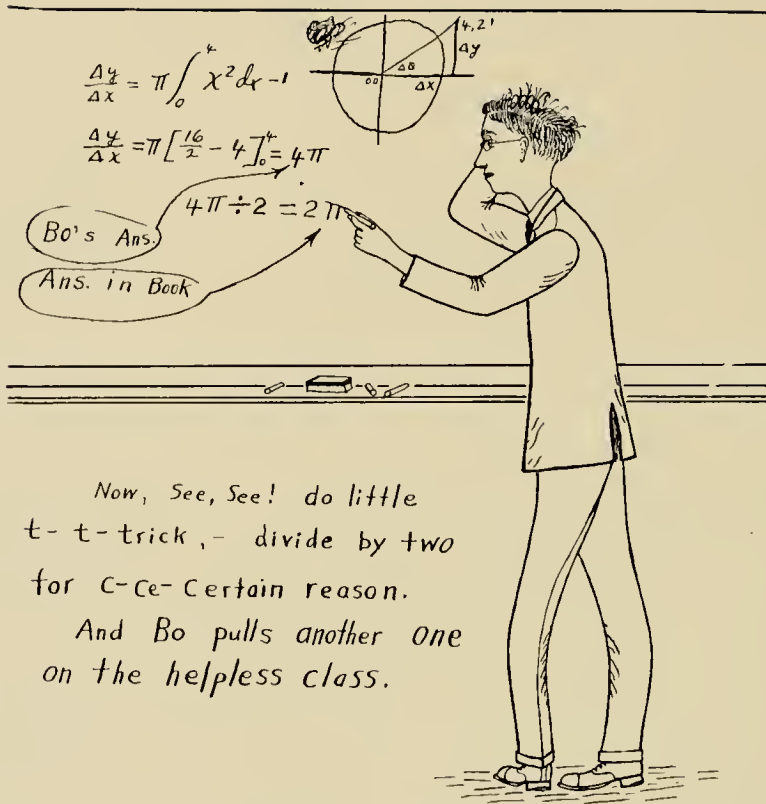 4,2'
Δy
Δθ
00
Δx
Δy/Δx = π∫₀⁴ x²dx - 1
Δy/Δx = π[16/2 - 4]₀⁴ = 4π
4π÷2 = 2π
Bo's Ans.
Ans. in Book
Now, See, See! do little
t- t- trick,- divide by two
for C-Ce-Certain reason.
And Bo pulls another one
on the helpless class.